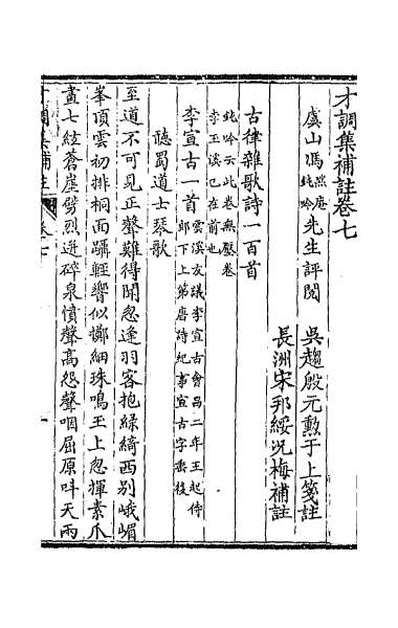 才調集補註卷七
虞山馮默庵鈍吟先生評閱
吳趨殷元勳于上箋註
長洲宋邦綏況梅補註
古律雜歌詩一百首
鈍吟云此卷無壓卷
李玉溪已在前也
李宣古一首
雲溪友議李宣古會昌二年王起侍
郎下上第唐詩紀事宣古字垂後
聽蜀道士琴歌
至道不可見正聲難得聞忽逢羽客抱綠綺西別峨嵋
峯頂雲初排桐面躡輕響似擲細珠鳴玉上忽揮素爪
畫七絃蒼崖劈烈迸碎泉憤聲高怨聲咽屈原叫天兩